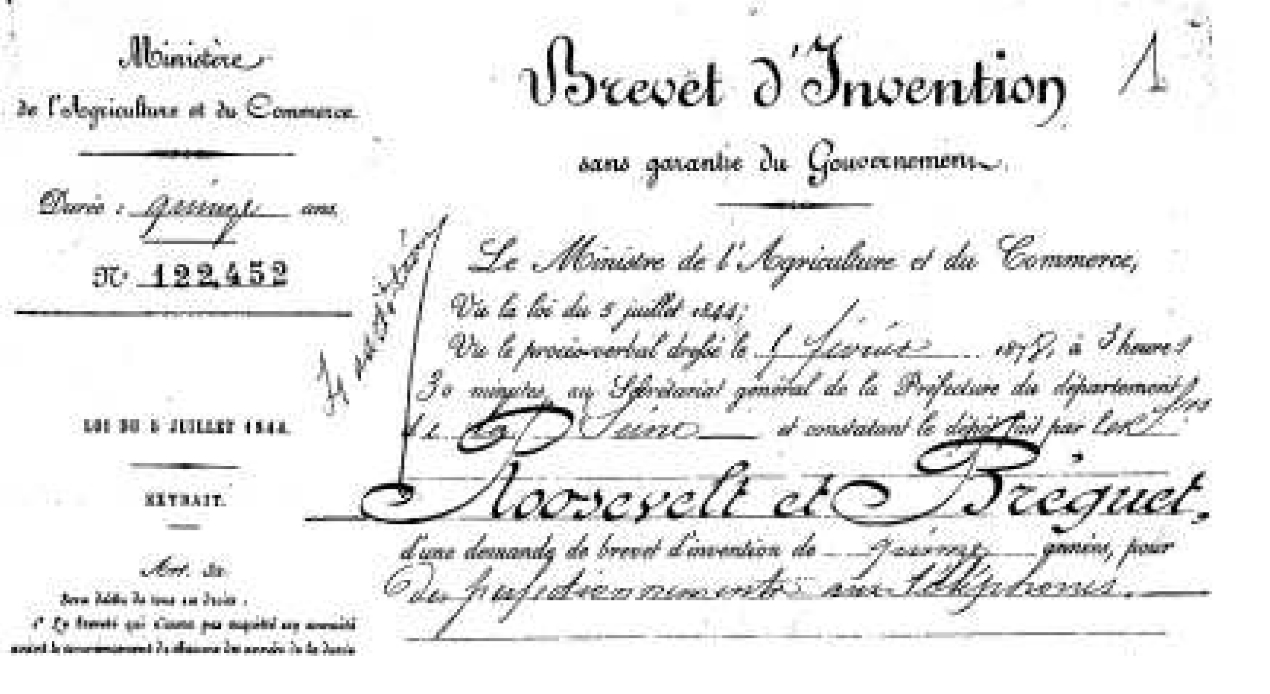 Ministère
de l'Agriculture et du Commerce.
Durée : quinze ans.
N° 122,452
LOI DU 5 JUILLET 1844.
EXTRAIT.
Art. 32.
Sera déchu de tous ses droits :
1° Le breveté qui n'aura pas acquitté son annuité
avant le commencement de chacune des années de la durée
1
Brevet d'Invention
sans garantie du Gouvernement.
Le Ministre de l'Agriculture et du Commerce,
Vu la loi du 5 juillet 1844;
Vu le procès-verbal dressé le février 1878, à 3 heures
30 minutes, au Secrétariat général de la Préfecture du département
de la Seine et constatant le dépôt fait par les Srs
Roosevelt et Bréguet,
d'une demande de brevet d'invention de quinze années, pour
des perfectionnements aux téléphones.